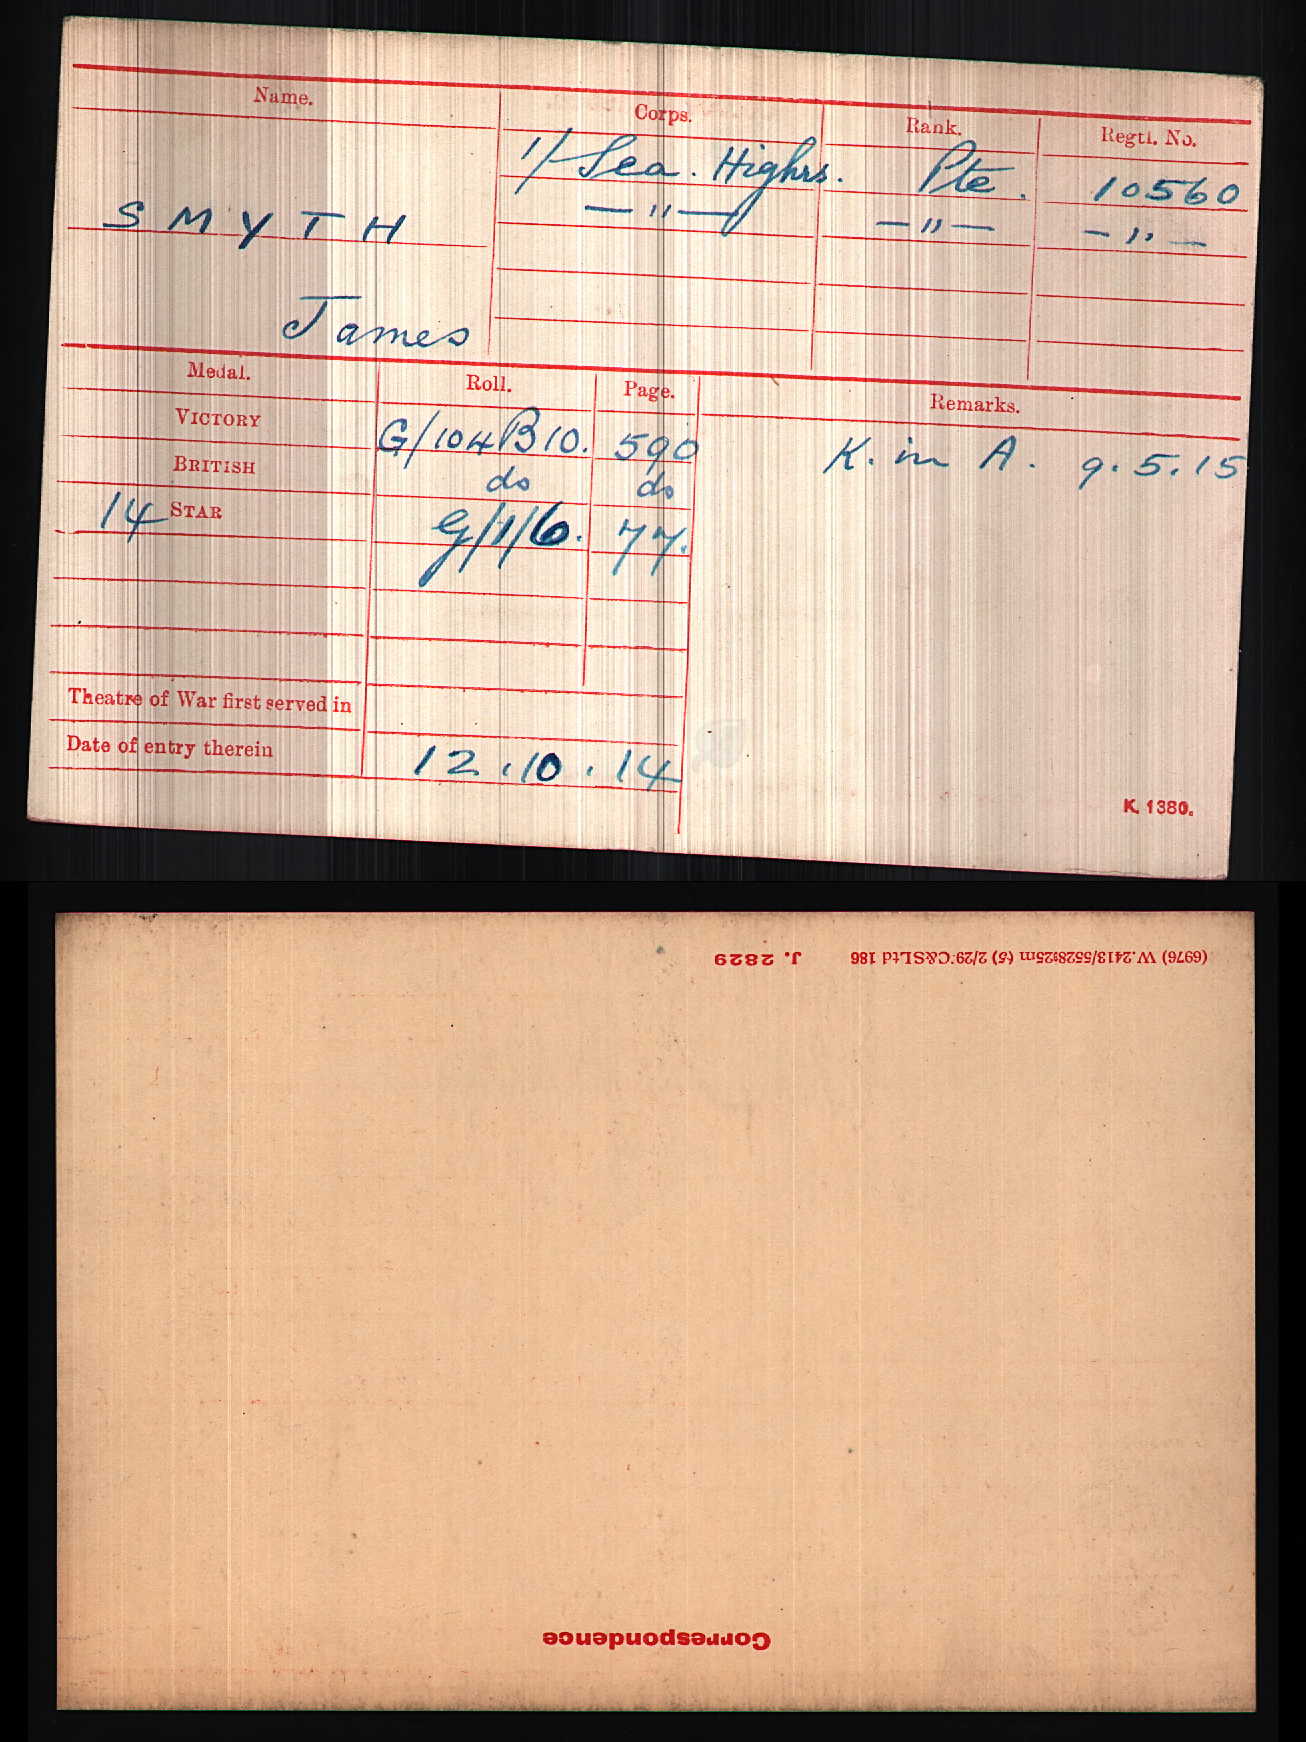 Name. Corps. Rank. Regtl. No.
1/ Sea. Highrs. Pte. 10560
SMYTH — " — — " — — " —
James
Medal. Roll. Page. Remarks.
VICTORY G/104B10. 590 K. in A. 9.5.15
BRITISH do do
14 STAR G/1/6. 77.
Theatre of War first served in
Date of entry therein 12.10.14
K. 1380.
(6976) W.2413/5528 25m (5) 2/29. C&S Ltd 186 J. 2829
Correspondence